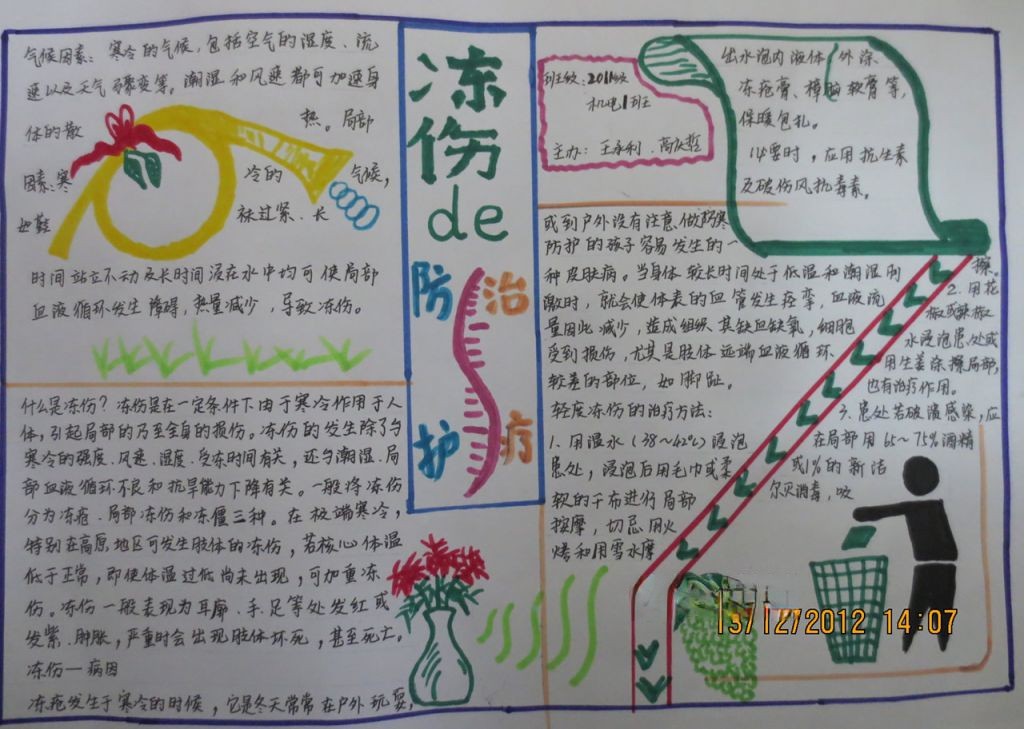 气候因素：寒冷的气候，包括空气的湿度、流
速以及天气骤变等。潮湿和风速都可加速身
体的散
热。局部
因素：寒
冷的
气候，
如鞋
袜过紧、长
时间站立不动及长时间浸在水中均可使局部
血液循环发生障碍，热量减少，导致冻伤。
什么是冻伤？冻伤是在一定条件下由于寒冷作用于人
体，引起局部的乃至全身的损伤。冻伤的发生除了与
寒冷的强度、风速、湿度、受冻时间有关，还与潮湿、局
部血液循环不良和抗旱能力下降有关。一般将冻伤
分为冻疮、局部冻伤和冻僵三种。在极端寒冷，
特别在高原地区可发生肢体的冻伤，若核心体温
低于正常，即使体温过低尚未出现，可加重冻
伤。冻伤一般表现为耳廓、手、足等处发红或
发紫、肿胀，严重时会出现肢体坏死，甚至死亡。
冻伤一病因
冻疮发生于寒冷的时候，它是冬天常常在户外玩耍，
冻
伤
de
防治
护疗
班级：2011级
机电1班
主办：王永利、高
出水泡内液体，外涂
冻疮膏、樟脑软膏等，
保暖包扎。
必要时，应用抗生素
及破伤风抗毒素。
或到户外没有注意做防寒
防护的孩子容易发生的一
种皮肤病。当身体较长时间处于低温和潮湿刺
激时，就会使体表的血管发生痉挛，血液流
量因此减少，造成组织缺血缺氧，细胞
受到损伤，尤其是肢体远端血液循环
较差的部位，如脚趾。
轻度冻伤的治疗方法：
1、用温水（38~42℃）浸泡
患处，浸泡后用毛巾或柔
软的干布进行局部
按摩，切忌用火
烤和用雪水摩
擦。
2、用花
椒或辣椒
水浸泡患处或
用生姜涂擦局部，
也有治疗作用。
3、患处若破溃感染，应
在局部用65~75%酒精
或1%的新洁
尔灭消毒，吸
13/12/2012 14:07